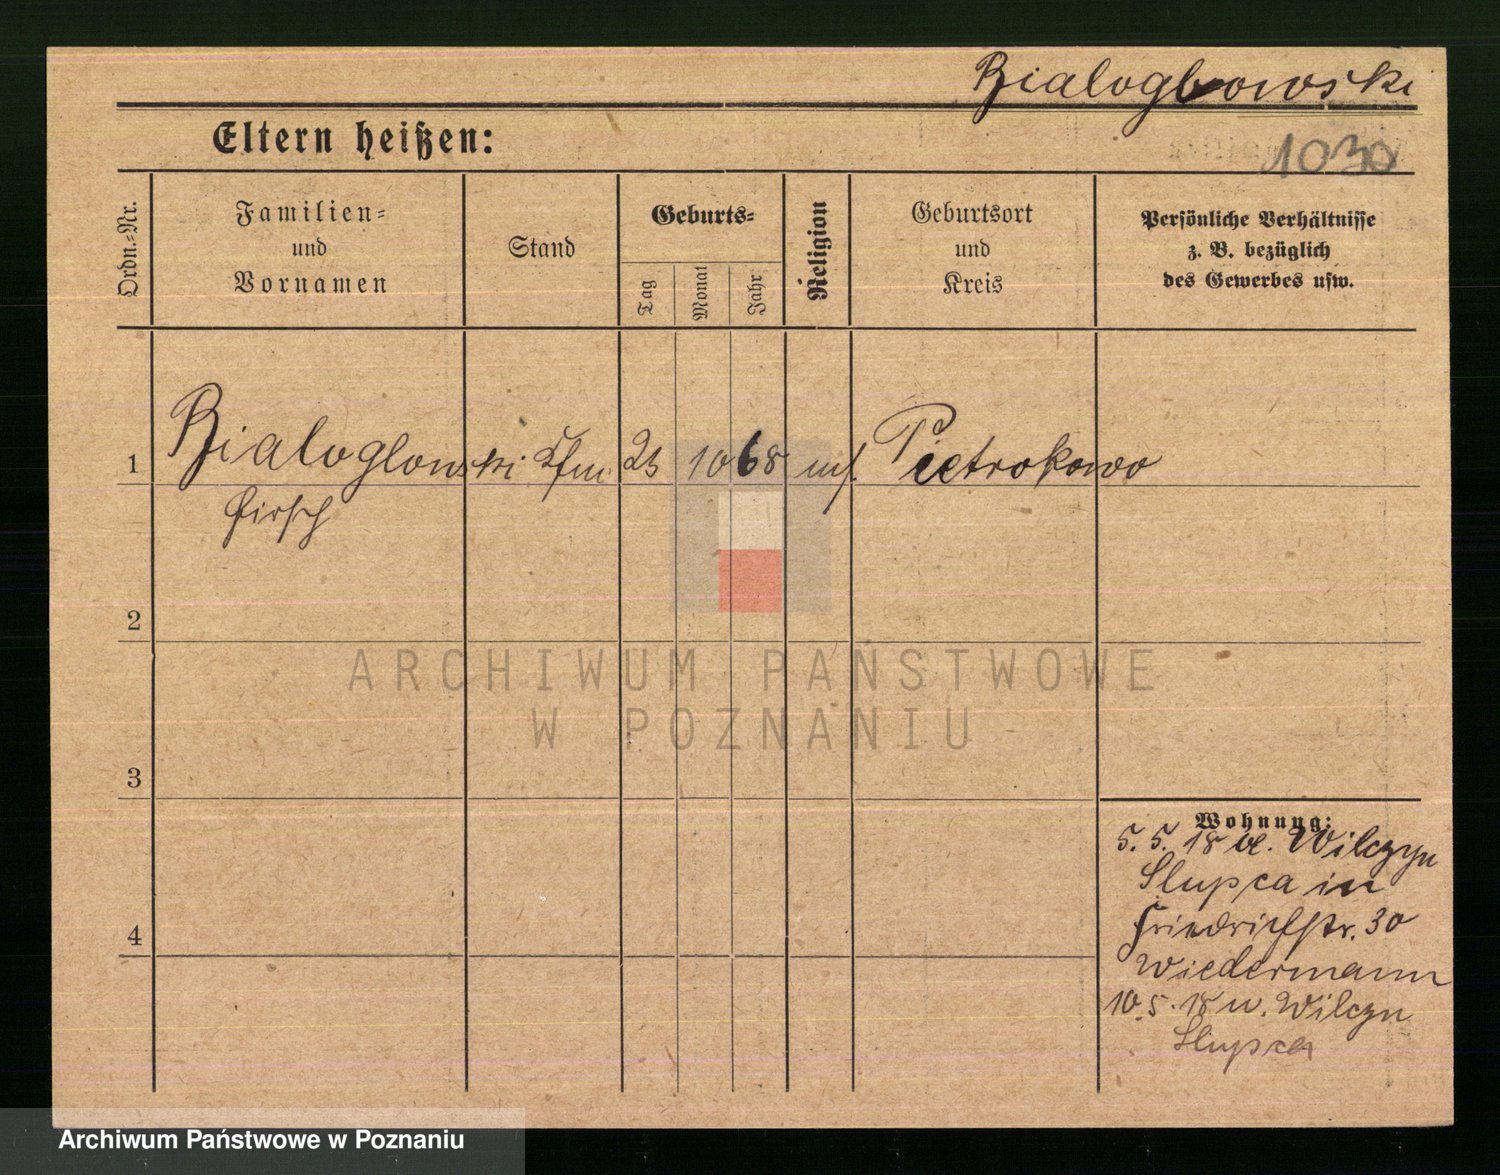 Bialoglowski
1030
Eltern heißen:
Ordn.-Nr.
Familien-
und
Vornamen
Stand
Geburts-
Tag
Monat
Jahr
Religion
Geburtsort
und
Kreis
Persönliche Verhältnisse
z. B. bezüglich
des Gewerbes usw.
1 Bialoglowski Kfm 23 10 68 mos. Pietrokowo
Hirsch
2
3
4
Wohnung:
5. 5. 18 v. Wilczyn
Slupca in
Friedrichstr. 30
Wiedermann
10. 5. 18 n. Wilczyn
Slupca
ARCHIWUM PAŃSTWOWE
W POZNANIU
Archiwum Państwowe w Poznaniu